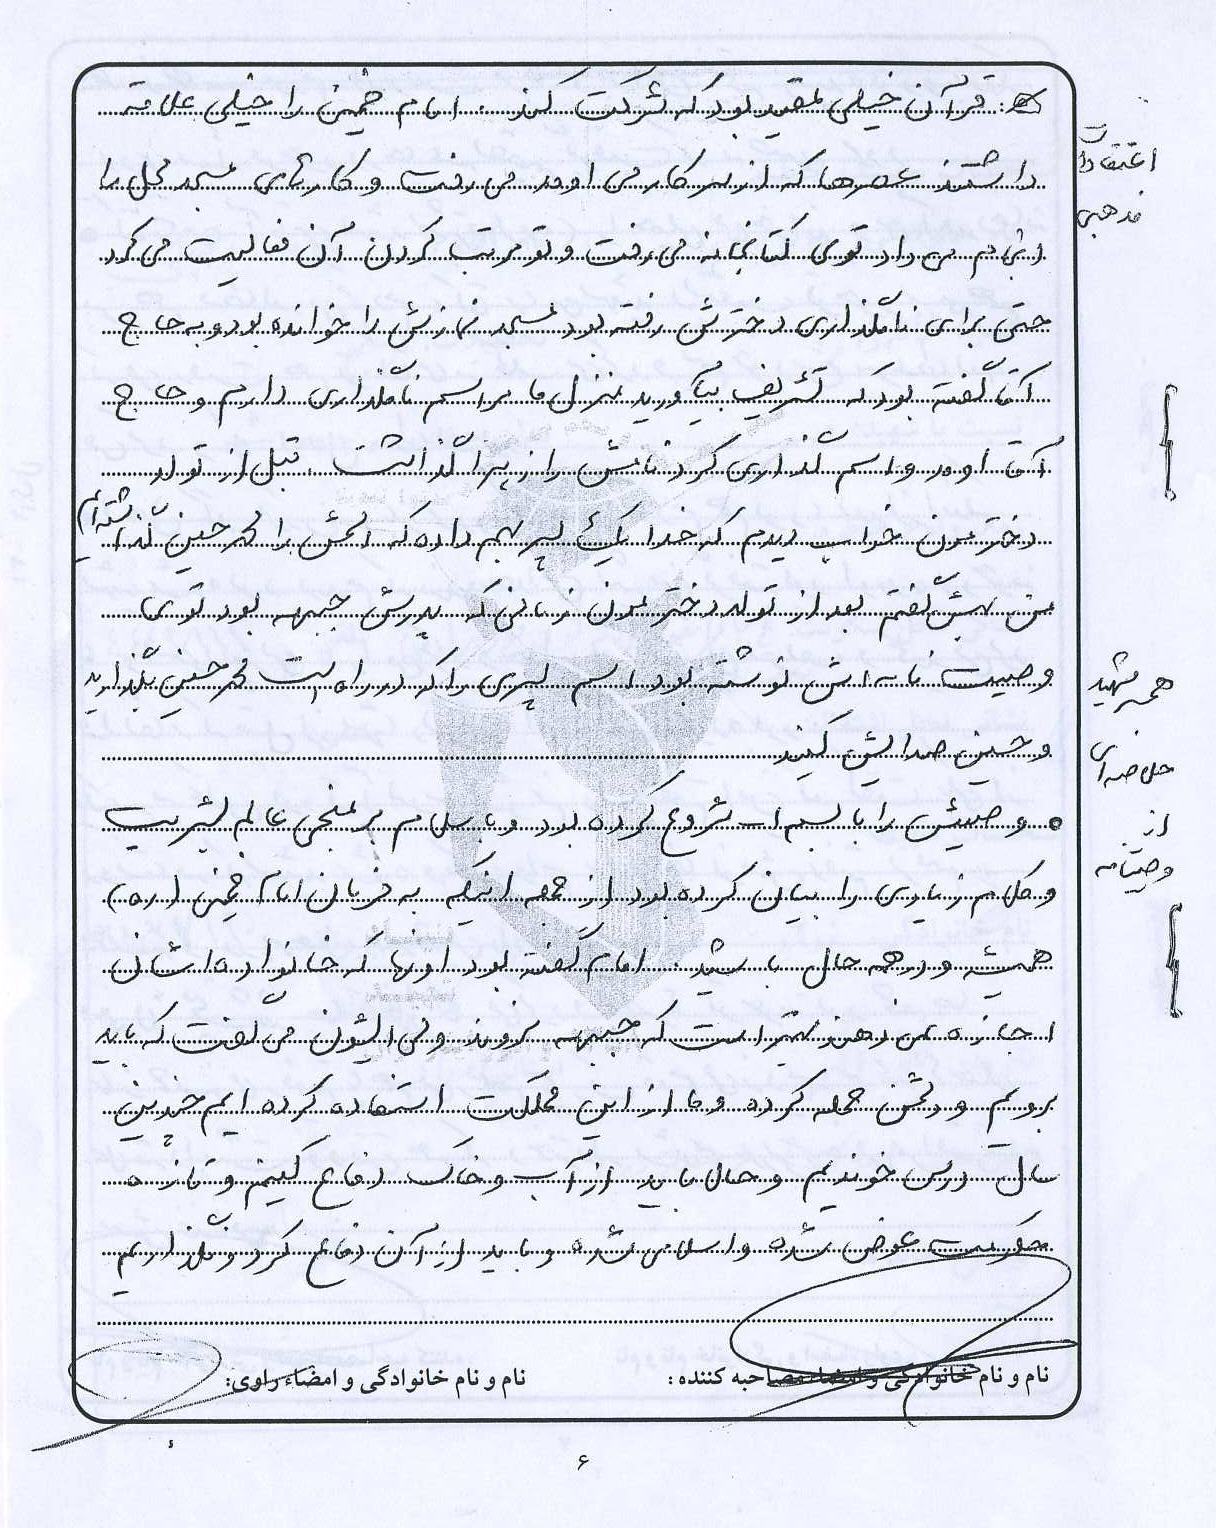 قرآن خیلی مقید بود که شرکت کند. امام خمینی را خیلی علاقه
داشتند عصرها که از سر کار می اومد می رفت و کارهای مسجد محل را
انجام می داد توی کتابخانه می رفت و تو مرتب کردن آن فعالیت می کرد
حتی برای نامگذاری دخترش رفته بود مسجد نمازش را خوانده بود و به حاج
آقا گفته بود که تشریف بیاورید منزل ما مراسم نامگذاری داریم و حاج
آقا اومد و اسم گذاری کرد نامش را زهرا گذاشت. قبل از تولد
دخترمون خواب دیدم که خدا یک پسر بهم داده که اسمش را محمدحسین گذاشته ایم
من بهش گفتم بعد از تولد دخترمون زمانی که پدرش جبهه بود توی
وصیت نامه اش نوشته بود اسم پسری را که در راه است محمدحسین بگذارید
و حسین صدایش کنید
وصیتش را با بسم الله شروع کرده بود و با سلام بر منجی عالم بشریت
و کلام زیادی را بیان کرده بود از جمله اینکه به فرمان امام خمینی (ره)
همیشه و در همه حال باشید. امام گفته بود اونها که خانواده اشان
اجازه نمی دهند بهتر است که جبهه نروند ولی ایشون می گفت که باید
برویم و دشمن حمله کرده و ما از این مملکت استفاده کرده ایم چندین
سال درس خوندیم و حال باید از آب و خاک دفاع کنیم و تازه
حکومت عوض شده و اسلامی شده و باید از آن دفاع کرد و نگذاریم
اعتقادات
مذهبی
همسر شهید
خلاصه ای
از
وصیتنامه
نام و نام خانوادگی و امضاء مصاحبه کننده :
نام و نام خانوادگی و امضاء راوی:
۶